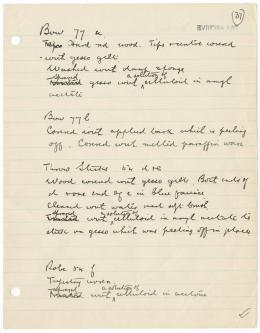 37
Bow 77 a
Hard red wood. Tips + centre covered
with gesso gilt
Washed with damp sponge
Sprayed with a solution of celluloid in amyl
acetate
Bow 77 b
Covered with applied bark which is peeling
off. Covered with melted paraffin wax
Throw Sticks
Wood covered with gesso gilt. Both ends of
d + one end of e in blue faience
Cleaned with water and soft brush
Sprayed with a solution of celluloid in amyl acetate to
stick on gesso which was peeling off in places
Robe 54 f
Tapestry woven
Sprayed with a solution of celluloid in acetone